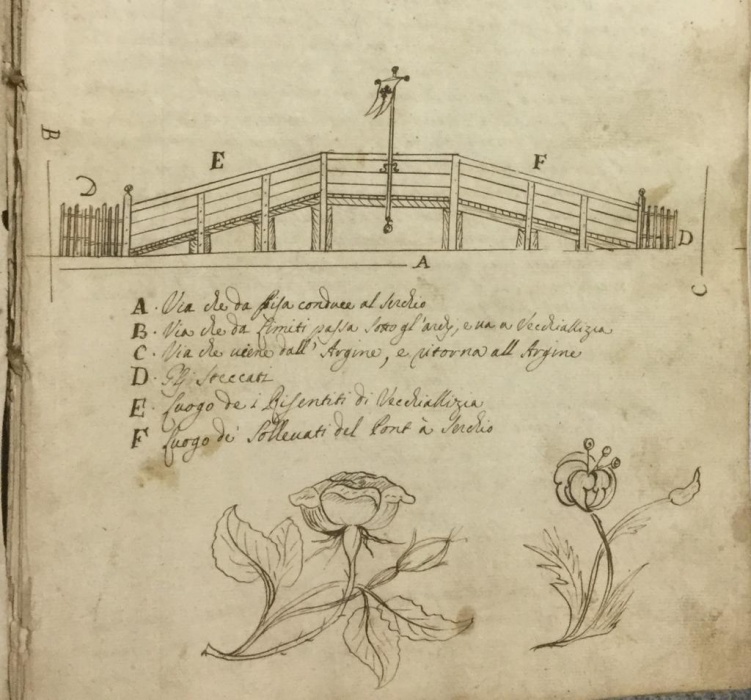 B
E
F
D
D
A
C
A. Via che da Pisa conduce al Serchio
B. Via che da Limiti passa sotto gl'archi, e va a Vecchiallizia
C. Via che viene dall'Argine, e ritorna all Argine
D. Gli Steccati
E. Luogo de i Risentiti di Vecchiallizia
F. Luogo de' Sollevati del Pont à Serchio